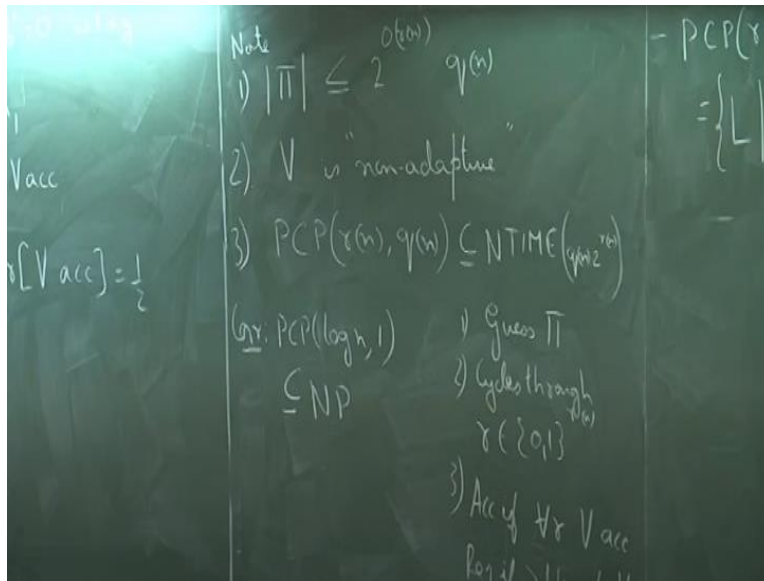 V acc
[V acc] = 1/2
Note
1) |Π| ≤ 2^{O(r(n))} q(n)
2) V is "non-adaptive"
3) PCP(r(n), q(n)) ⊆ NTIME(q(n) 2^{r(n)})
Cor: PCP(log n, 1)
⊆ NP
1) Guess Π
2) Cycles through
r ∈ {0,1}^{r(n)}
3) Acc if ∀r V acc
- PCP(r
= {L|